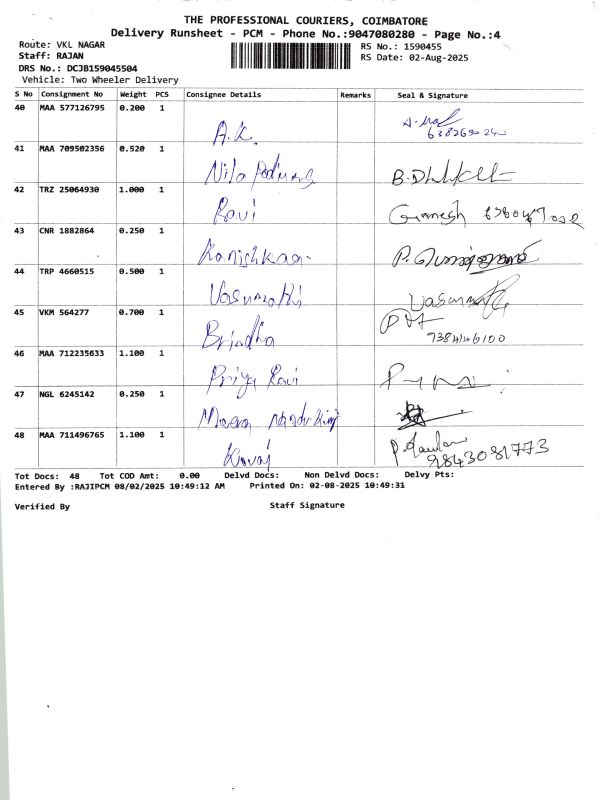 THE PROFESSIONAL COURIERS, COIMBATORE
Delivery Runsheet - PCM - Phone No.:9047080280 - Page No.:4
Route: VKL NAGAR
Staff: RAJAN
DRS No.: DCJB159045504
Vehicle: Two Wheeler Delivery
RS No.: 1590455
RS Date: 02-Aug-2025
S No Consignment No Weight PCS Consignee Details Remarks Seal & Signature
40 MAA 577126795 0.200 1 A.K.
41 MAA 709502356 0.520 1 Nila
42 TRZ 25064930 1.000 1 Ravi Ganesh
43 CNR 1882864 0.250 1 Kanishkaa
44 TRP 4660515 0.500 1 Vasumathi
45 VKM 564277 0.700 1 Brindha 9384146100
46 MAA 712235633 1.100 1 Priya Ravi
47 NGL 6245142 0.250 1
48 MAA 711496765 1.100 1 9843081773
Tot Docs: 48 Tot COD Amt: 0.00 Delvd Docs: Non Delvd Docs: Delvy Pts:
Entered By :RAJIPCM 08/02/2025 10:49:12 AM Printed On: 02-08-2025 10:49:31
Verified By Staff Signature